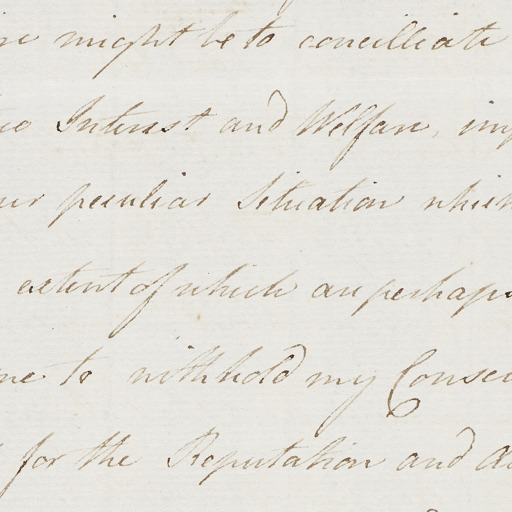 might be to concilliate
Interest and Welfare, imp
peculiar Situation which
extent of which are perhaps
me to withhold my Consen
for the Reputation and